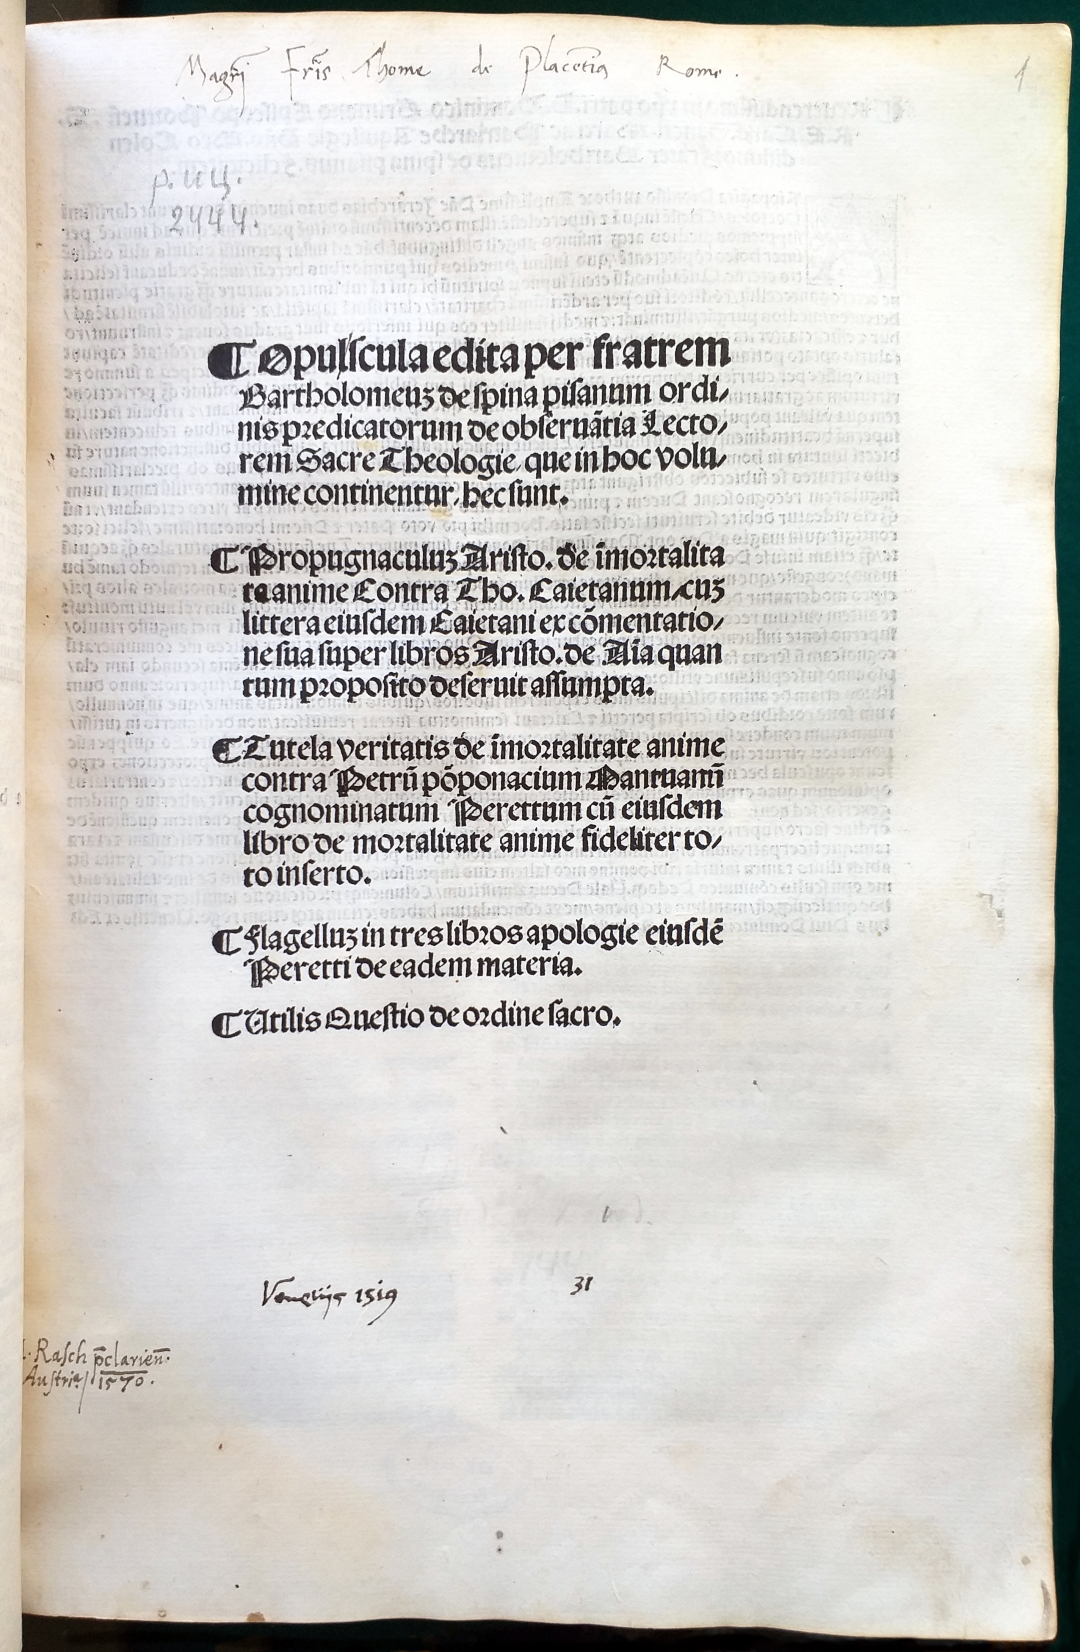 Magrī Frīs Thome de Placētia Rome.
1
2444.
¶ Opuscula edita per fratrem
Bartholomeuʒ de spina pisanum ordi/
nis predicatorum de obseruātia Lecto/
rem Sacre Theologie, que in hoc volu/
mine continentur, hec sunt.
¶ Propugnaculuʒ Aristo. de īmortalita
te anime Contra Tho. Caietanum cuʒ
littera eiusdem Caietani ex cōmentatio/
ne sua super libros Aristo. de Aīa quan
tum proposito deseruit assumpta.
¶ Tutela veritatis de īmortalitate anime
contra Petrū pōponacium Mantuanū
cognominatum Perettum cū eiusdem
libro de mortalitate anime fideliter to/
to inserto.
¶ Flagelluʒ in tres libros apologie eiusdē
Peretti de eadem materia.
¶ Utilis Questio de ordine sacro.
Venetijs 1519 31
Rasch p̄clarien̄.
Austrię/ 1570.